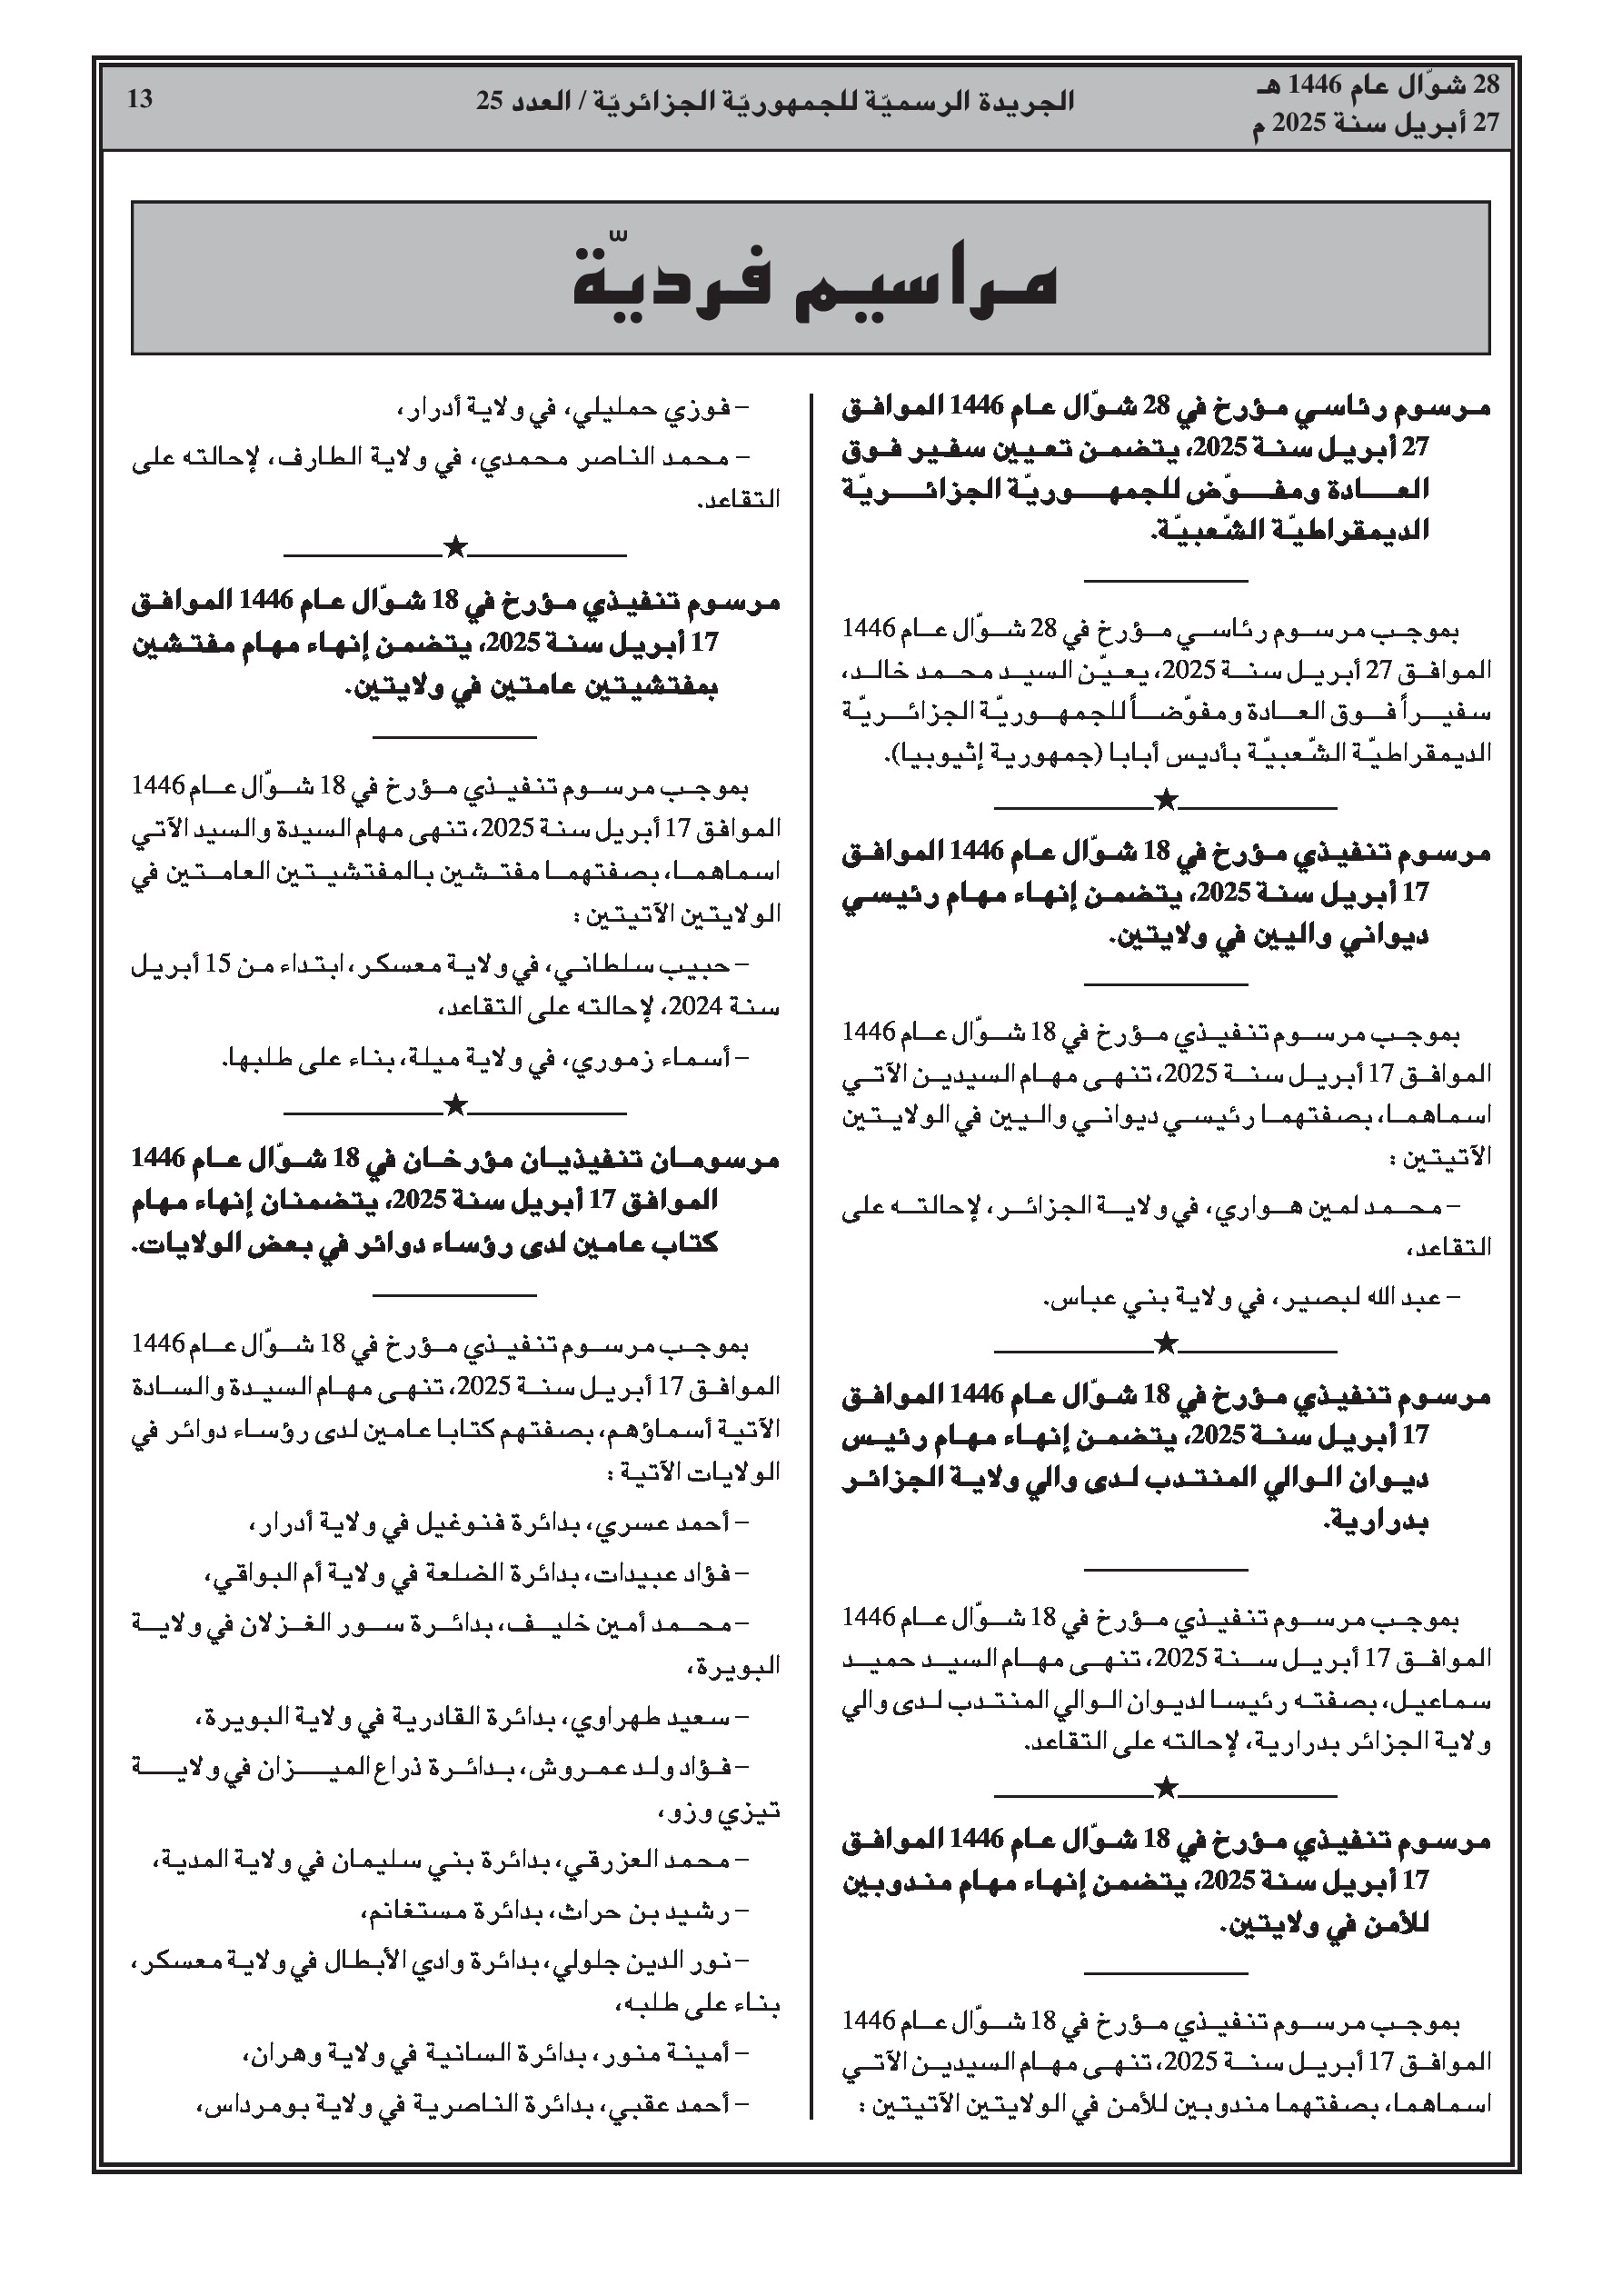 28 شوّال عام 1446 هـ
27 أبريل سنة 2025 م
الجريدة الرسميّة للجمهوريّة الجزائريّة / العدد 25
13
مراسيم فرديّة
مرسوم رئاسي مؤرخ في 28 شوّال عام 1446 الموافق
27 أبريل سنة 2025، يتضمن تعيين سفير فوق
العادة ومفوّض للجمهوريّة الجزائريّة
الديمقراطيّة الشّعبيّة.
بموجب مرسوم رئاسي مؤرخ في 28 شوّال عام 1446
الموافق 27 أبريل سنة 2025، يعيّن السيد محمد خالد،
سفيراً فوق العادة ومفوّضاً للجمهوريّة الجزائريّة
الديمقراطيّة الشّعبيّة بأديس أبابا (جمهورية إثيوبيا).
مرسوم تنفيذي مؤرخ في 18 شوّال عام 1446 الموافق
17 أبريل سنة 2025، يتضمن إنهاء مهام رئيسي
ديواني واليين في ولايتين.
بموجب مرسوم تنفيذي مؤرخ في 18 شوّال عام 1446
الموافق 17 أبريل سنة 2025، تنهى مهام السيدين الآتي
اسماهما، بصفتهما رئيسي ديواني واليين في الولايتين
الآتيتين :
– محمد لمين هواري، في ولاية الجزائر، لإحالته على
التقاعد،
– عبد الله لبصير، في ولاية بني عباس.
مرسوم تنفيذي مؤرخ في 18 شوّال عام 1446 الموافق
17 أبريل سنة 2025، يتضمن إنهاء مهام رئيس
ديوان الوالي المنتدب لدى والي ولاية الجزائر
بدرارية.
بموجب مرسوم تنفيذي مؤرخ في 18 شوّال عام 1446
الموافق 17 أبريل سنة 2025، تنهى مهام السيد حميد
سماعيل، بصفته رئيسا لديوان الوالي المنتدب لدى والي
ولاية الجزائر بدرارية، لإحالته على التقاعد.
مرسوم تنفيذي مؤرخ في 18 شوّال عام 1446 الموافق
17 أبريل سنة 2025، يتضمن إنهاء مهام مندوبين
للأمن في ولايتين.
بموجب مرسوم تنفيذي مؤرخ في 18 شوّال عام 1446
الموافق 17 أبريل سنة 2025، تنهى مهام السيدين الآتي
اسماهما، بصفتهما مندوبين للأمن في الولايتين الآتيتين :
– فوزي حمليلي، في ولاية أدرار،
– محمد الناصر محمدي، في ولاية الطارف، لإحالته على
التقاعد.
مرسوم تنفيذي مؤرخ في 18 شوّال عام 1446 الموافق
17 أبريل سنة 2025، يتضمن إنهاء مهام مفتشين
بمفتشيتين عامتين في ولايتين.
بموجب مرسوم تنفيذي مؤرخ في 18 شوّال عام 1446
الموافق 17 أبريل سنة 2025، تنهى مهام السيدة والسيد الآتي
اسماهما، بصفتهما مفتشين بالمفتشيتين العامتين في
الولايتين الآتيتين :
– حبيب سلطاني، في ولاية معسكر، ابتداء من 15 أبريل
سنة 2024، لإحالته على التقاعد،
– أسماء زموري، في ولاية ميلة، بناء على طلبها.
مرسومان تنفيذيان مؤرخان في 18 شوّال عام 1446
الموافق 17 أبريل سنة 2025، يتضمنان إنهاء مهام
كتاب عامين لدى رؤساء دوائر في بعض الولايات.
بموجب مرسوم تنفيذي مؤرخ في 18 شوّال عام 1446
الموافق 17 أبريل سنة 2025، تنهى مهام السيدة والسادة
الآتية أسماؤهم، بصفتهم كتابا عامين لدى رؤساء دوائر في
الولايات الآتية :
– أحمد عسري، بدائرة فنوغيل في ولاية أدرار،
– فؤاد عبيدات، بدائرة الضلعة في ولاية أم البواقي،
– محمد أمين خليف، بدائرة سور الغزلان في ولاية
البويرة،
– سعيد طهراوي، بدائرة القادرية في ولاية البويرة،
– فؤاد ولد عمروش، بدائرة ذراع الميزان في ولاية
تيزي وزو،
– محمد العزرقي، بدائرة بني سليمان في ولاية المدية،
– رشيد بن حراث، بدائرة مستغانم،
– نور الدين جلولي، بدائرة وادي الأبطال في ولاية معسكر،
بناء على طلبه،
– أمينة منور، بدائرة السانية في ولاية وهران،
– أحمد عقبي، بدائرة الناصرية في ولاية بومرداس،